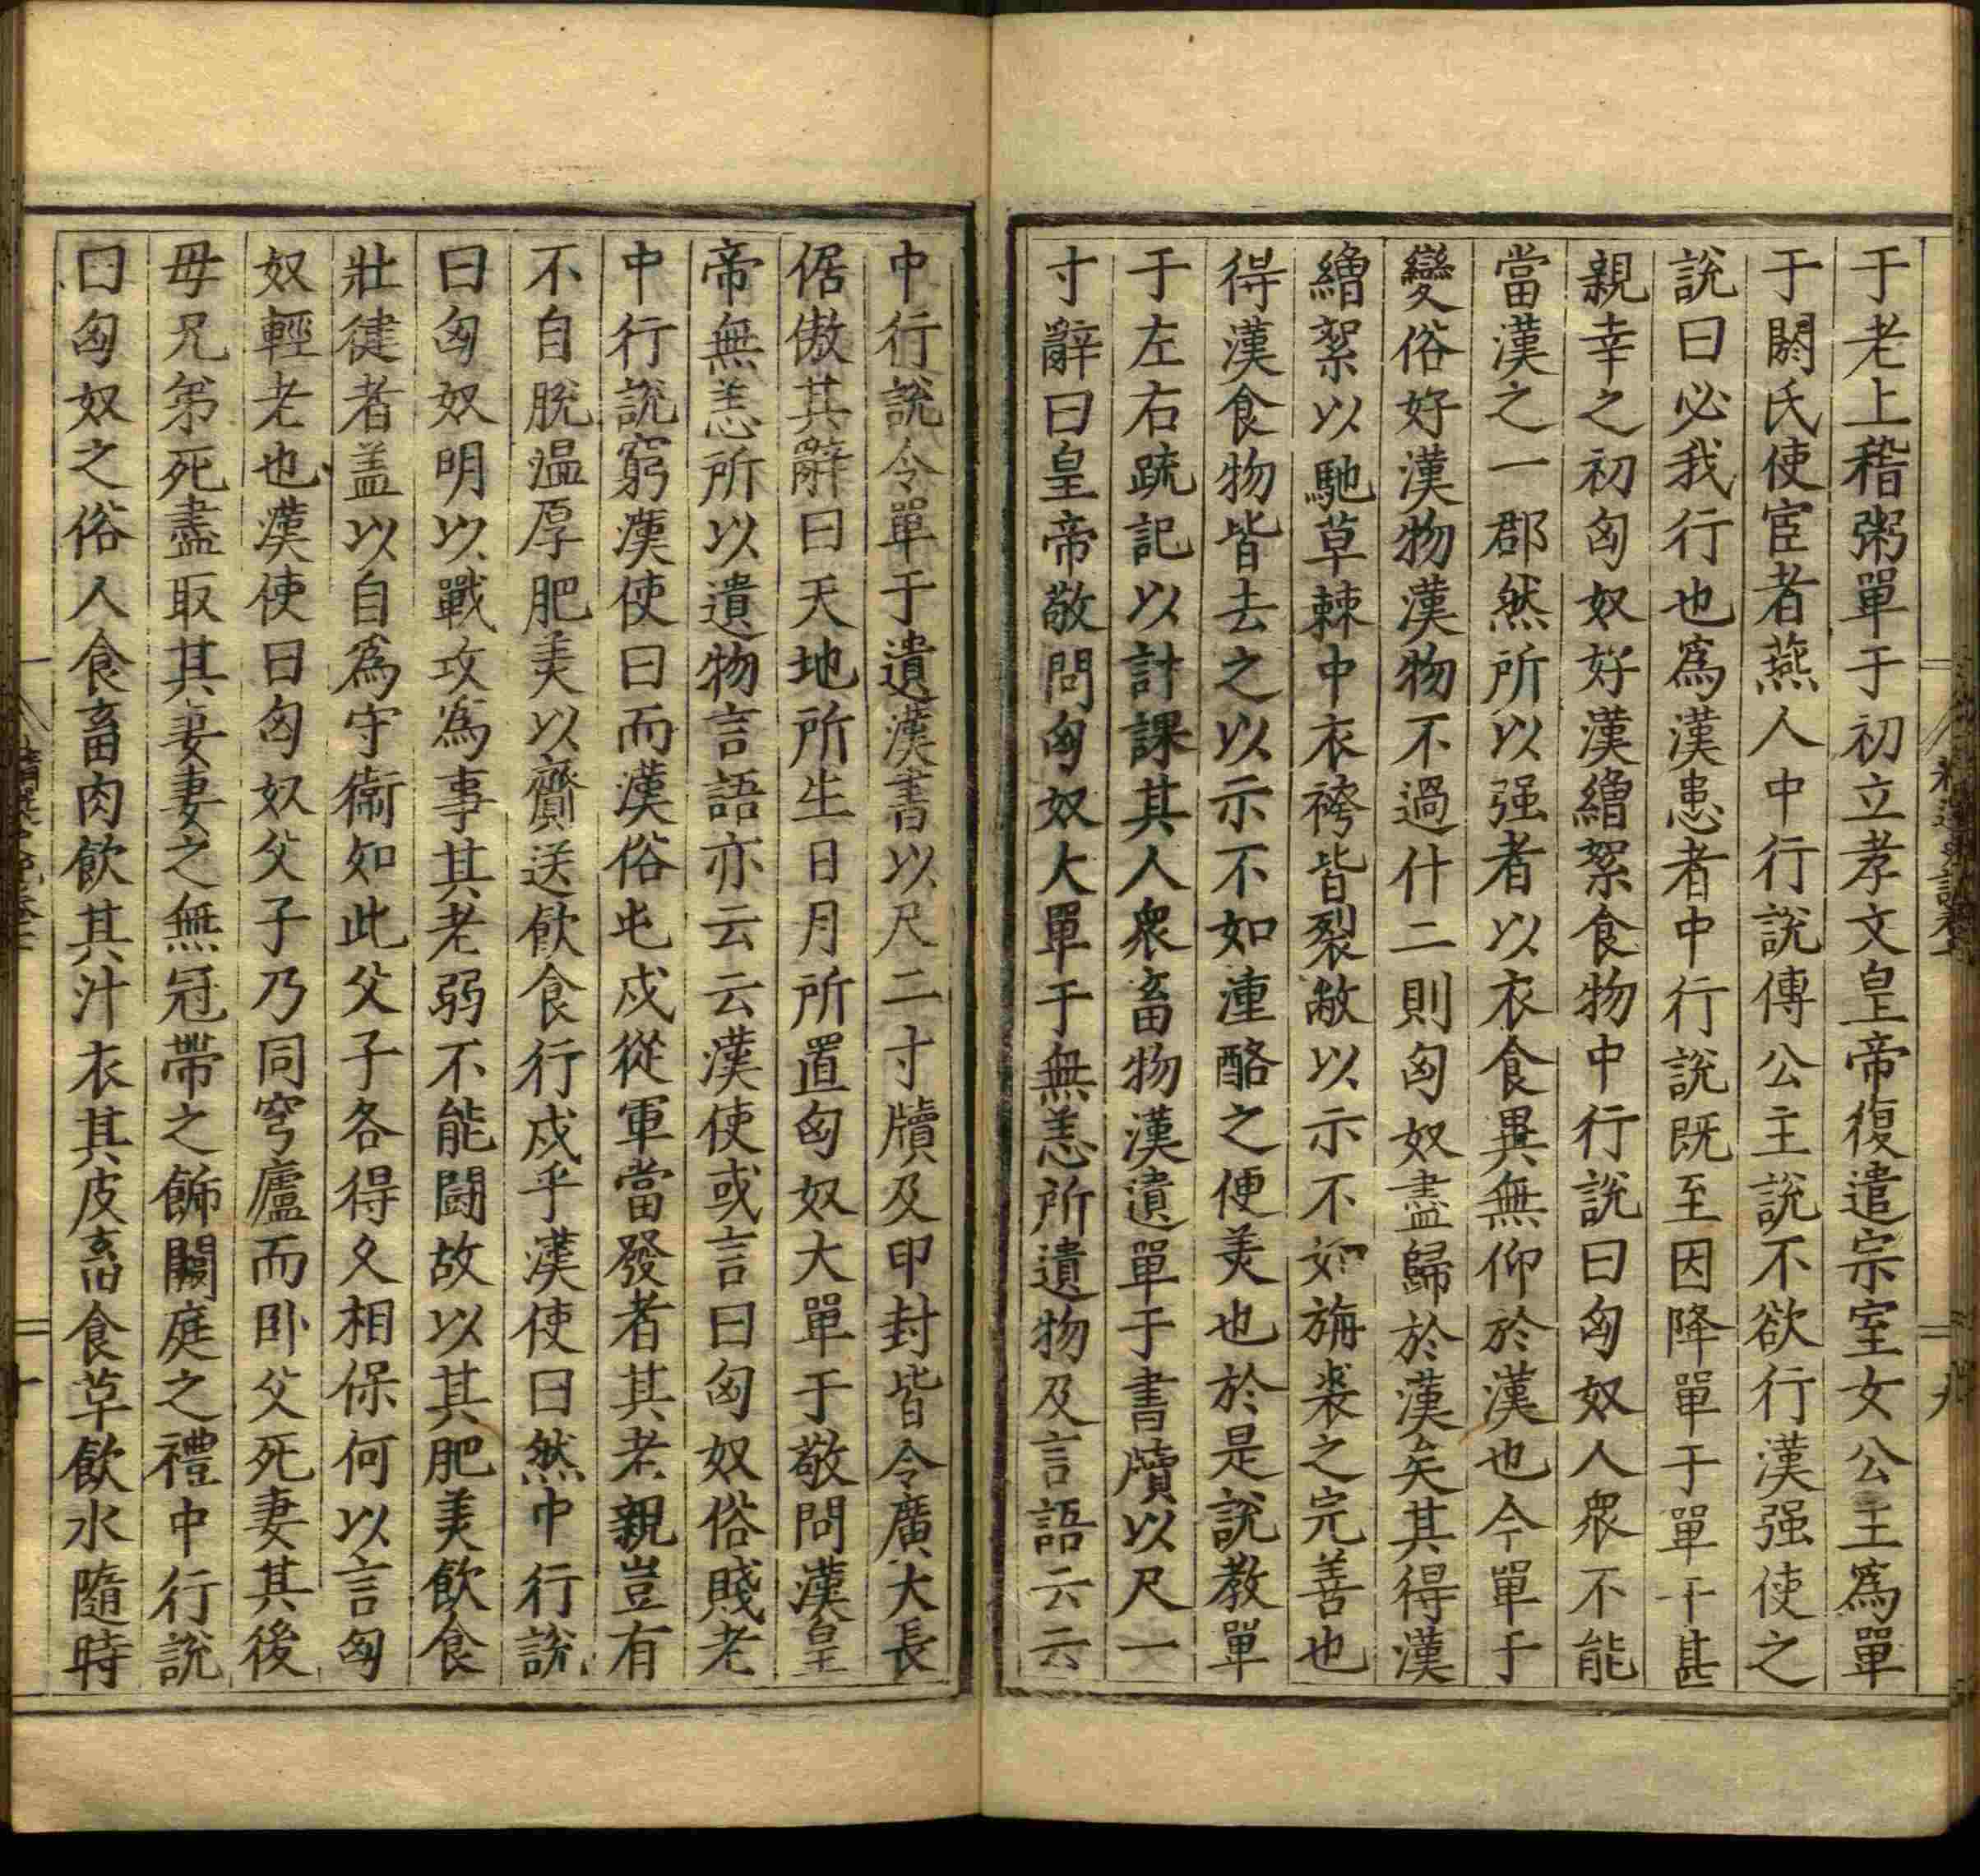 于老上稽粥單于初立孝文皇帝復遣宗室女公主爲單
于閼氏使宦者燕人中行說傳公主說不欲行漢强使之
說曰必我行也爲漢患者中行說旣至因降單于單于甚
親幸之初匈奴好漢繒絮食物中行說曰匈奴人衆不能
當漢之一郡然所以强者以衣食異無仰於漢也今單于
變俗好漢物漢物不過什二則匈奴盡歸於漢矣其得漢
繒絮以馳草棘中衣袴皆裂敝以示不如旃裘之完善也
得漢食物皆去之以示不如湩酪之便美也於是說教單
于左右疏記以計課其人衆畜物漢遺單于書牘以尺一
寸辭曰皇帝敬問匈奴大單于無恙所遺物及言語云云
九
中行說令單于遺漢書以尺二寸牘及印封皆令廣大長
倨傲其辭曰天地所生日月所置匈奴大單于敬問漢皇
帝無恙所以遺物言語亦云云漢使或言曰匈奴俗賤老
中行說窮漢使曰而漢俗屯戍從軍當發者其老親豈有
不自脫温厚肥美以齎送飮食行戍乎漢使曰然中行說
曰匈奴明以戰攻爲事其老弱不能鬬故以其肥美飮食
壯徤者盖以自爲守衛如此父子各得久相保何以言匈
奴輕老也漢使曰匈奴父子乃同穹廬而卧父死妻其後
母兄弟死盡取其妻妻之無冠帶之飾闕庭之禮中行說
曰匈奴之俗人食畜肉飮其汁衣其皮畜食草飮水隨時
十